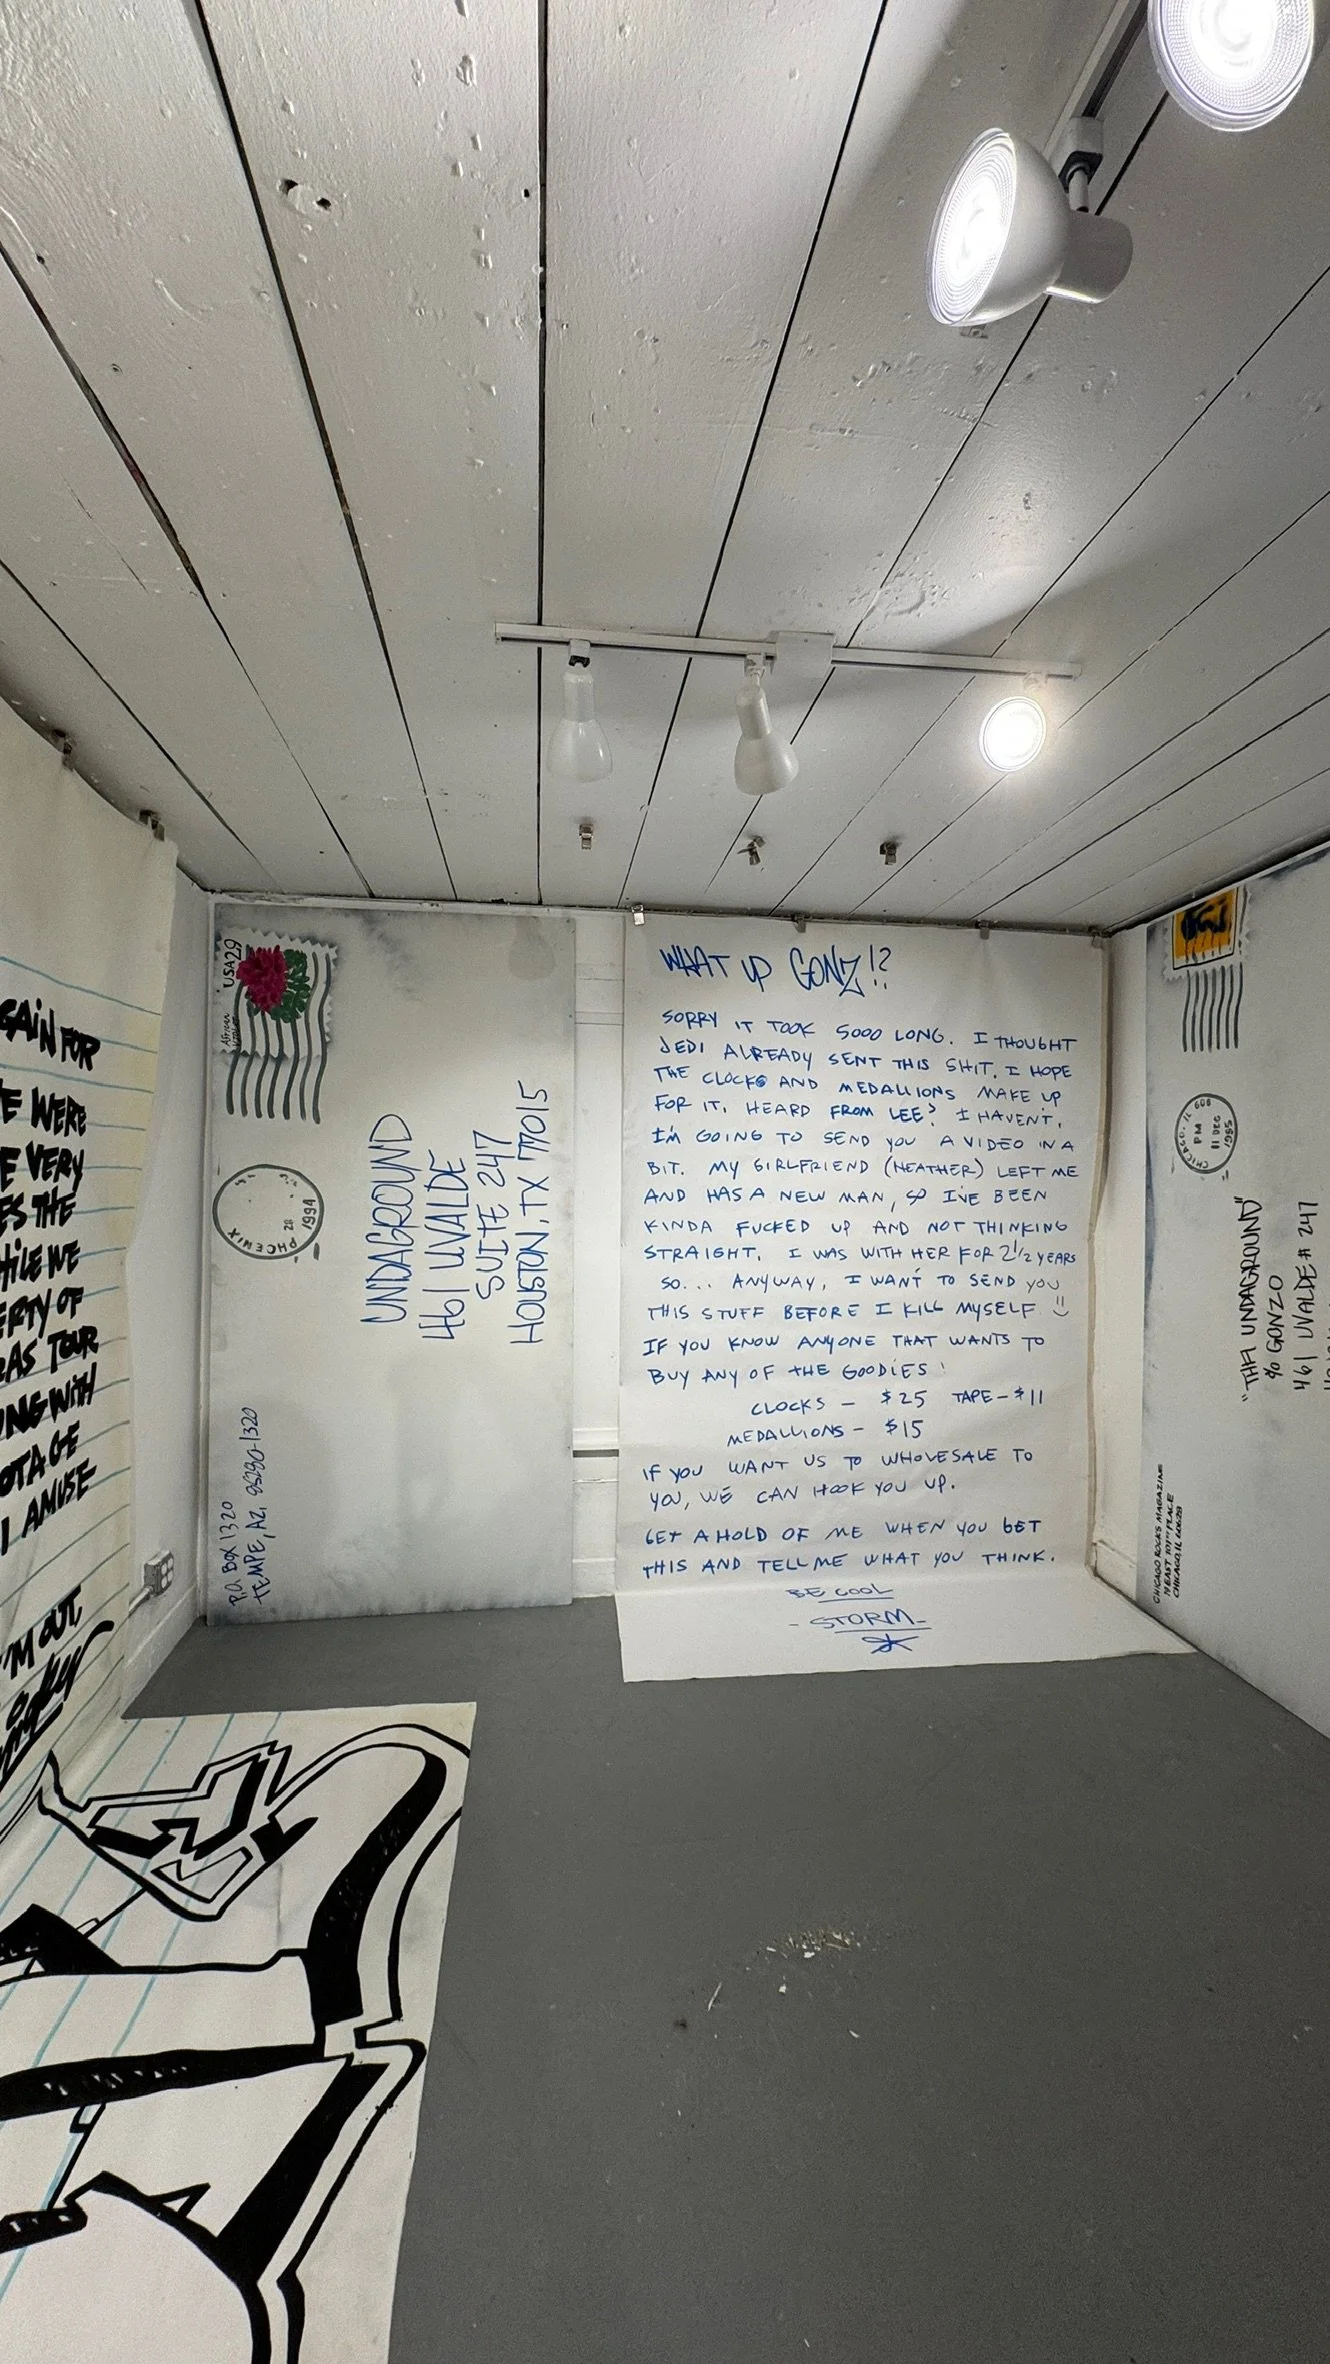 GAIN FOR
WERE
VERY
THE
WE
OF
TOUR
WITH
I AMUSE
I'M OUT,
USA29
African Violet
PHOENIX
20
1994
UNDAGROUND
461 UVALDE
SUITE 247
HOUSTON, TX 77015
P.O. BOX 1320
TEMPE, AZ, 85280-1320
WHAT UP GONZ!?
SORRY IT TOOK SOOO LONG. I THOUGHT
JEDI ALREADY SENT THIS SHIT. I HOPE
THE CLOCKS AND MEDALLIONS MAKE UP
FOR IT. HEARD FROM LEE? I HAVEN'T.
I'M GOING TO SEND YOU A VIDEO IN A
BIT. MY GIRLFRIEND (HEATHER) LEFT ME
AND HAS A NEW MAN, SO I'VE BEEN
KINDA FUCKED UP AND NOT THINKING
STRAIGHT. I WAS WITH HER FOR 2 1/2 YEARS
SO... ANYWAY, I WANT TO SEND YOU
THIS STUFF BEFORE I KILL MYSELF
IF YOU KNOW ANYONE THAT WANTS TO
BUY ANY OF THE GOODIES:
CLOCKS — $25 TAPE — $11
MEDALLIONS — $15
IF YOU WANT US TO WHOLESALE TO
YOU, WE CAN HOOK YOU UP.
GET A HOLD OF ME WHEN YOU GET
THIS AND TELL ME WHAT YOU THINK.
BE COOL
- STORM -
CHICAGO, IL 606
PM
11 DEC
1995
"THA UNDAGROUND"
% GONZO
461 UVALDE # 247
CHICAGO ROCKS MAGAZINE
EAST 101ST PLACE
CHICAGO, IL 60628